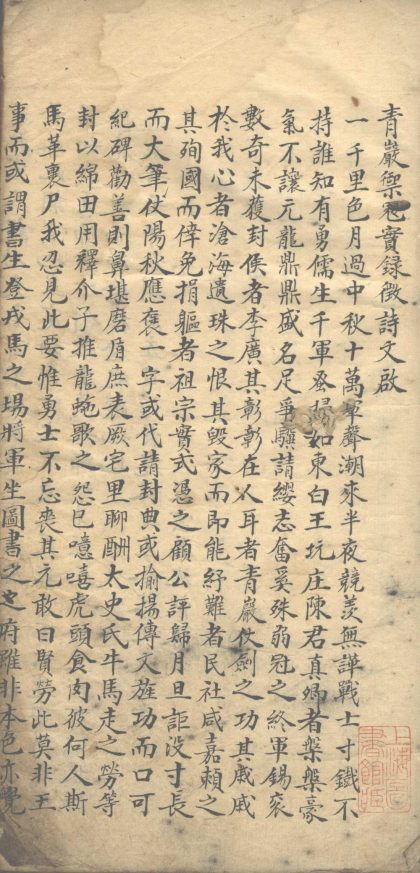 青巖禦寇實錄徵詩文啟
一千里色月過中秋十萬軍聲潮來半夜競羨無譁戰士寸鐵不
持誰知有勇儒生千軍登婦如東白王坑庄陳君真卿者槃槃豪
氣不讓元龍鼎鼎盛名足爭驥請纓志奮奚殊弱冠之終軍錫衮
數奇未獲封侯者李廣其彰彰在人耳者青巖仗劍之功其戚戚
於我心者滄海遺珠之恨其毀家而即能紓難者民社咸嘉賴之
其殉國而倖免捐軀者祖宗實式憑之顧公評歸月旦詎沒寸長
而大筆仗陽秋應褒一字或代請封典或揄揚傳文旌功而口可
紀碑勸善則鼻堪磨盾庶表厥宅里聊酬太史氏牛馬走之勞等
封以綿田用釋介子推龍蛇歌之怨已噫嘻虎頭食肉彼何人斯
馬革裹尸我忍見此要惟勇士不忘喪其元敢曰賢勞此莫非王
事而或謂書生登戎馬之場將軍坐圖書之府雖非本色亦覺
上海圖書館藏